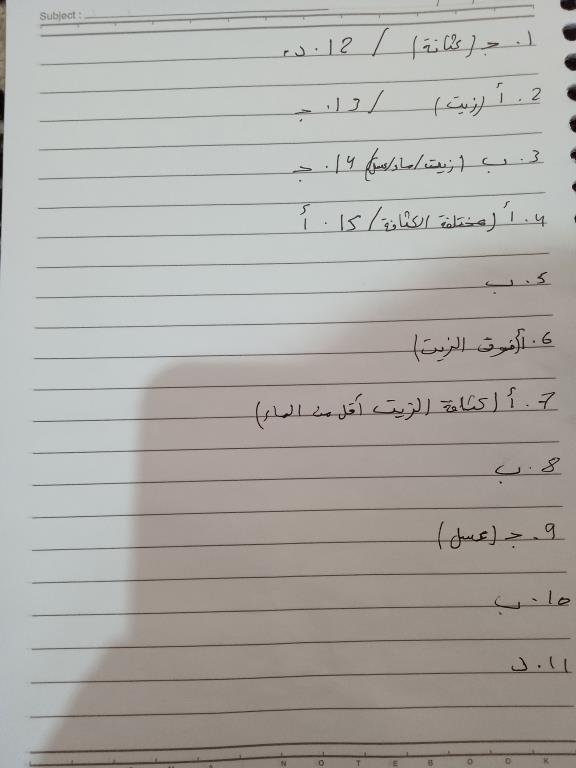 Subject :
1. ج (كثافة) / 12. د.
2. أ (زيت) / 13. ج
3. ب (زيت/ماء/عسل) 14. ج
4. أ (مختلفة الكثافة / 15. أ
5. ب
6. أ (فوق الزيت)
7. أ (كثافة الزيت أقل من الماء)
8. ب
9. ج (عسل)
10. ب
11. د
N O T E B O O K